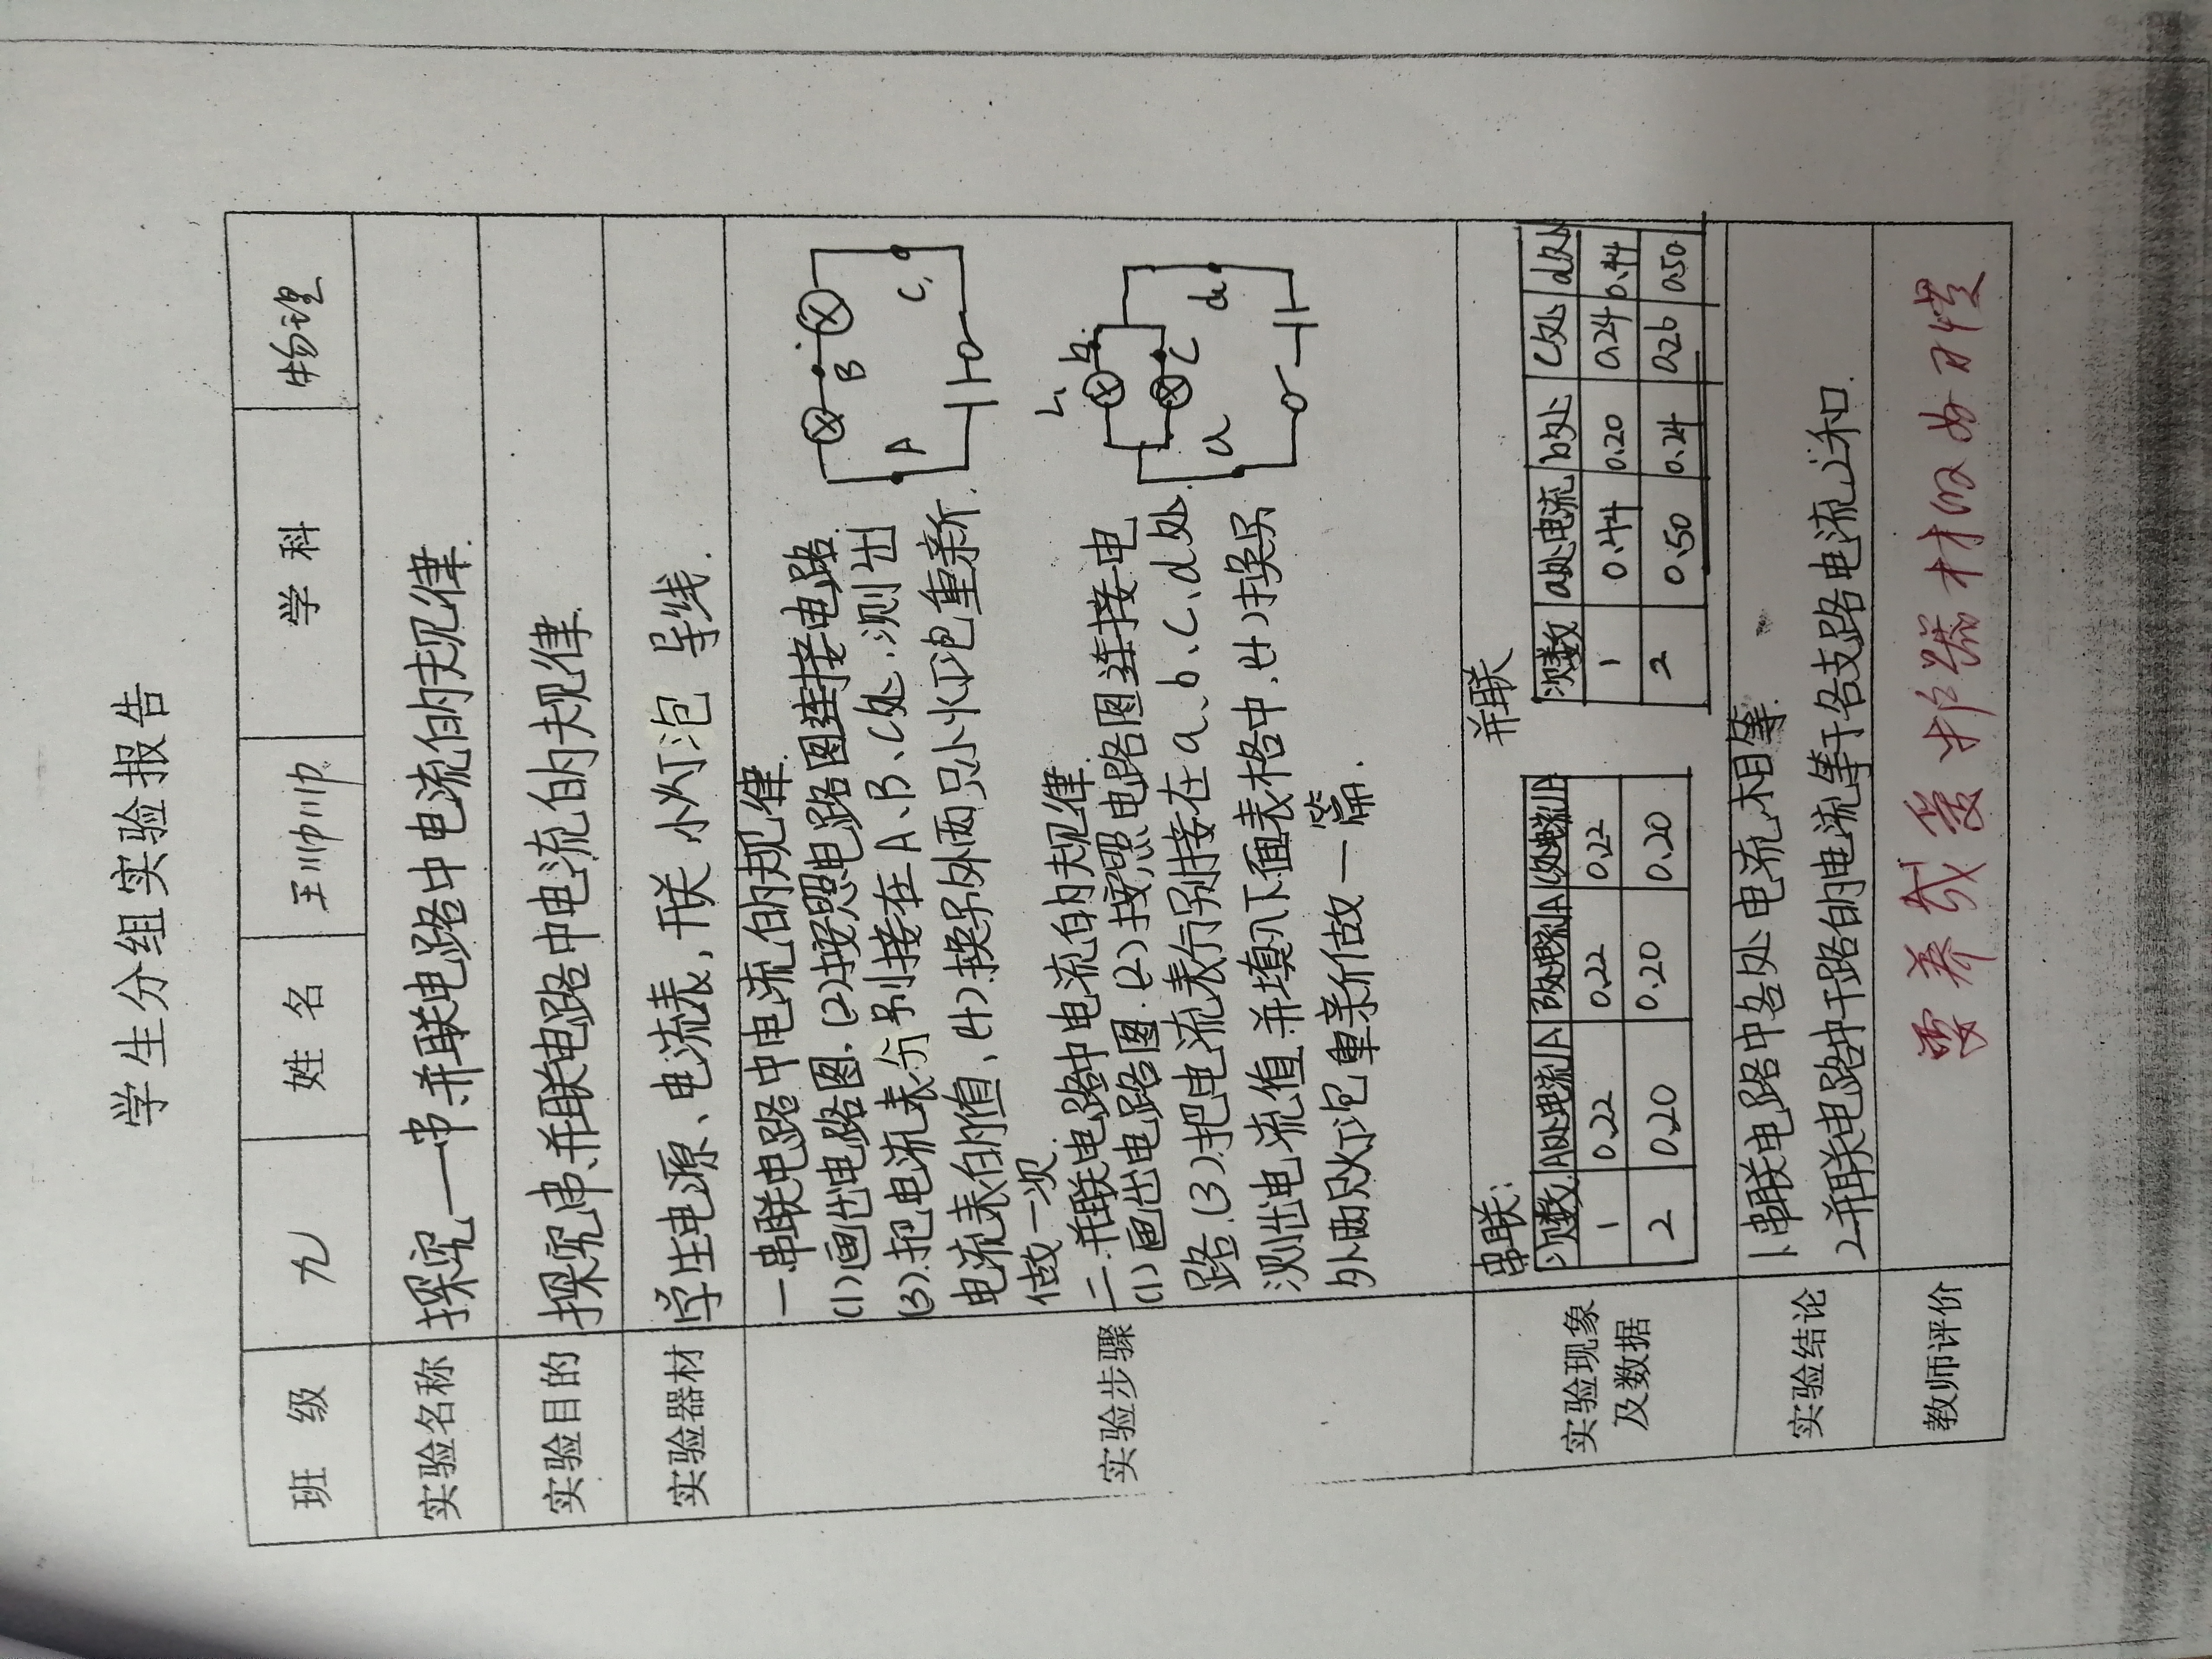 学生分组实验报告
班 级 九 姓 名 王帅帅 学 科 物理
实验名称 探究—串、并联电路中电流的规律.
实验目的 探究串、并联电路中电流的规律.
实验器材 学生电源、电流表,开关 小灯泡 导线.
实验步骤
一.串联电路中电流的规律.
(1)画出电路图.(2)按照电路图连接电路.
(3).把电流表分别接在A、B、C处.测出
电流表的值、(4)换另外两只小灯泡重新
做一次.
A B C
二.并联电路中电流的规律.
(1)画出电路图.(2)按照电路图连接电
路.(3).把电流表分别接在a、b、c、d处.
测出电流值并填入下面表格中.(4)换另
外两只灯泡重新做一篇.
L₁ a b c d
实验现象
及数据
串联:
次数 A处电流/A B处电流/A C处电流/A
1 0.22 0.22 0.22
2 0.20 0.20 0.20
并联
次数 a处电流 b处 c处 d处
1 0.44 0.20 0.24 0.44
2 0.50 0.24 0.26 0.50
实验结论
1.串联电路中各处电流相等.
2.并联电路中干路的电流等于各支路电流之和.
教师评价 要养成爱护器材的好习惯